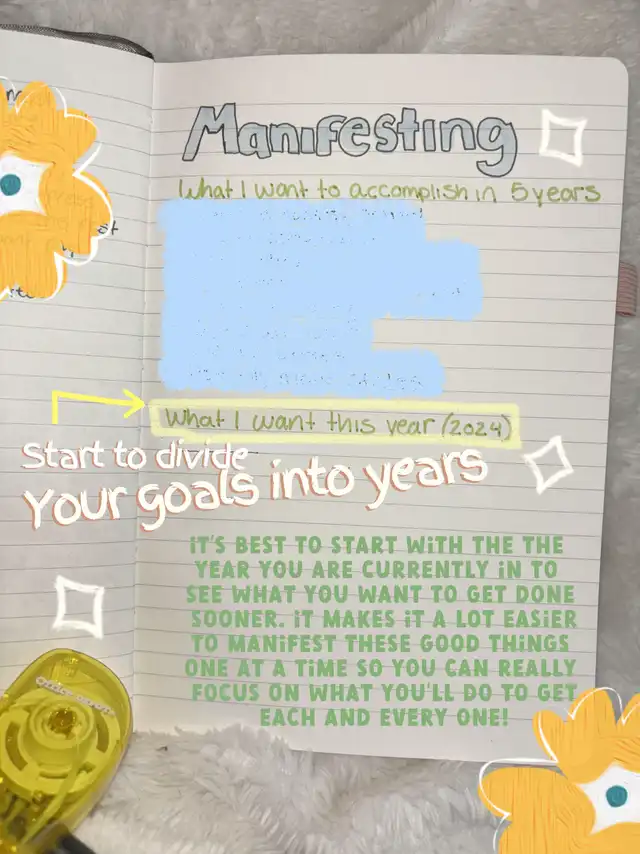 Manifesting
What I want to accomplish in 5 years
What I want this year (2024)
Start to divide
Your goals into years
iT'S BEST TO START WiTH THE THE
YEAR YOU ARE CURRENTLY iN TO
SEE WHAT YOU WANT TO GET DONE
SOONER. iT MAKES iT A LOT EASiER
TO MANiFEST THESE GOOD THiNGS
ONE AT A TiME SO YOU CAN REALLY
FOCUS ON WHAT YOU'LL DO TO GET
EACH AND EVERY ONE!